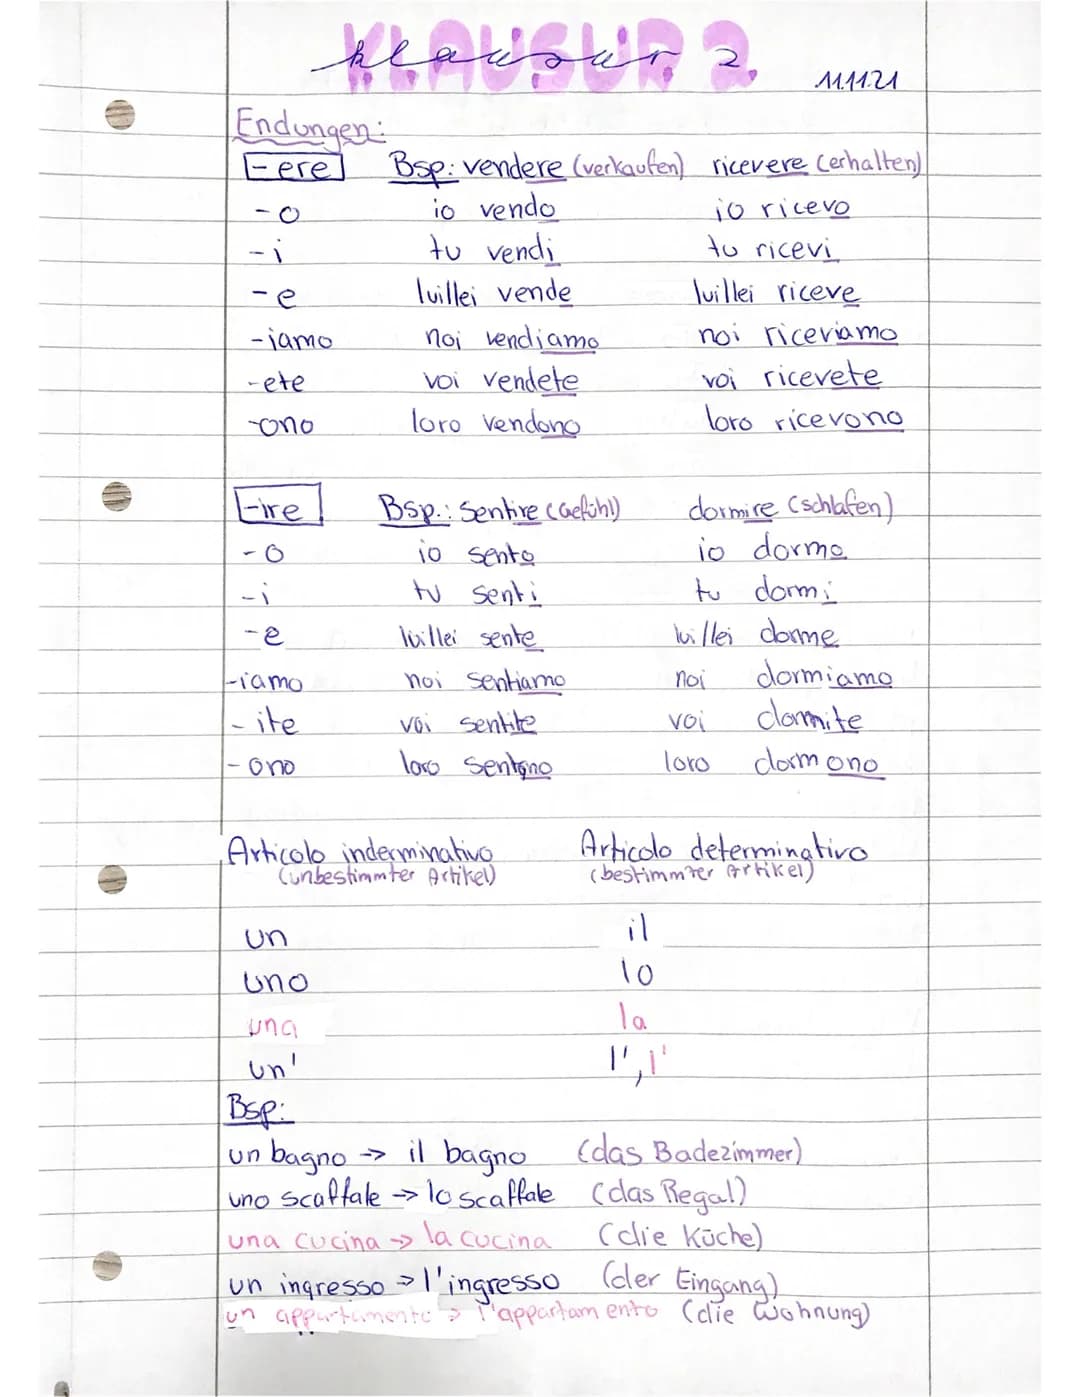 KLAUSUR 2.
klausur 2.
11.11.21
Endungen:
-ere Bsp: vendere (verkaufen) ricevere (erhalten)
-o io vendo io ricevo
-i tu vendi tu ricevi
-e lui/lei vende lui/lei riceve
-iamo noi vendiamo noi riceviamo
-ete voi vendete voi ricevete
-ono loro vendono loro ricevono
-ire Bsp.: Sentire (Gefühl) dormire (schlafen)
-o io sento io dormo
-i tu senti tu dormi
-e lui/lei sente lui/lei dorme
-iamo noi sentiamo noi dormiamo
-ite voi sentite voi dormite
-ono loro sentono loro dormono
Articolo inderminativo Articolo determinativo
(unbestimmter Artikel) (bestimmter Artikel)
un il
uno lo
una la
un' l', l'
Bsp:
un bagno -> il bagno (das Badezimmer)
uno scaffale -> lo scaffale (das Regal)
una cucina -> la cucina (die Küche)
un ingresso -> l'ingresso (der Eingang)
un appartamento -> l'appartamento (die Wohnung)